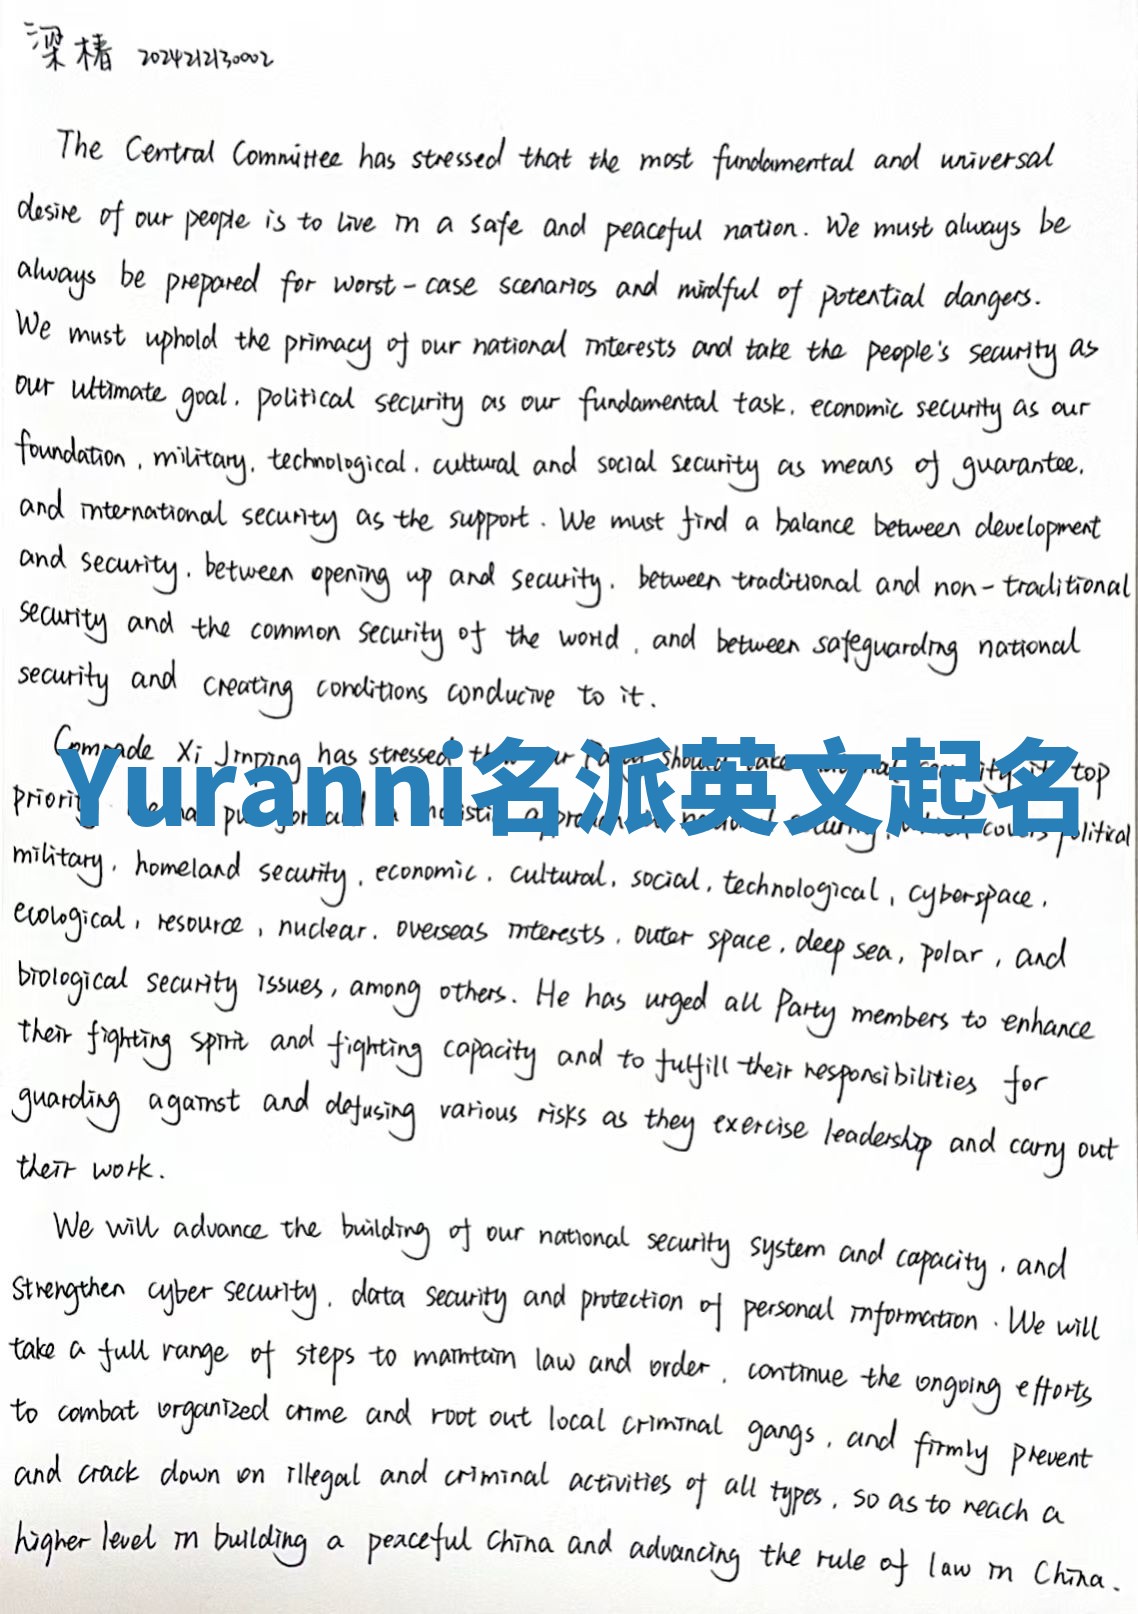 梁椿 2024212130002
The Central Committee has stressed that the most fundamental and universal
desire of our people is to live in a safe and peaceful nation. We must always be
always be prepared for worst-case scenarios and mindful of potential dangers.
We must uphold the primacy of our national interests and take the people's security as
our ultimate goal, political security as our fundamental task, economic security as our
foundation, military, technological, cultural and social security as means of guarantee,
and international security as the support. We must find a balance between development
and security, between opening up and security, between traditional and non-traditional
security and the common security of the world, and between safeguarding national
security and creating conditions conducive to it.
Comrade Xi Jinping has stressed should take top
Yuranni名派英文起名
covers political
military, homeland security, economic, cultural, social, technological, cyberspace,
ecological, resource, nuclear, overseas interests, outer space, deep sea, polar, and
biological security issues, among others. He has urged all Party members to enhance
their fighting spirit and fighting capacity and to fulfill their responsibilities for
guarding against and defusing various risks as they exercise leadership and carry out
their work.
We will advance the building of our national security system and capacity, and
strengthen cyber security, data security and protection of personal information. We will
take a full range of steps to maintain law and order, continue the ongoing efforts
to combat organized crime and root out local criminal gangs, and firmly prevent
and crack down on illegal and criminal activities of all types, so as to reach a
higher level in building a peaceful China and advancing the rule of law in China.